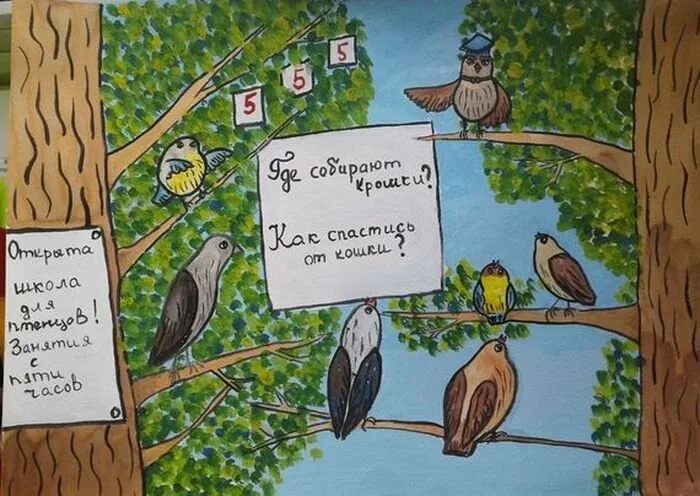 5
5
5
Где собирают
крошки?
Как спастись
от кошки?
Открыта
школа
для
птенцов!
Занятия
с
пяти
часов